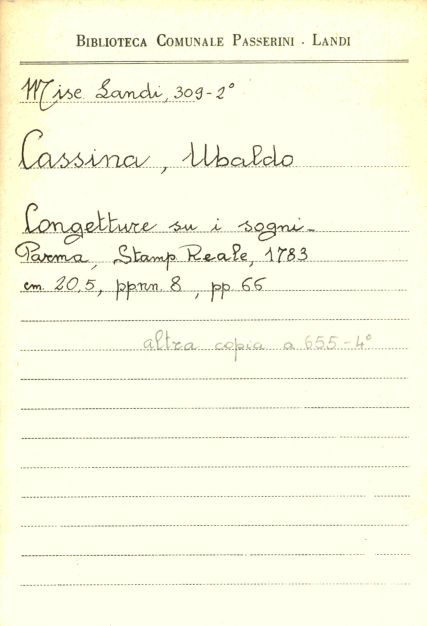 BIBLIOTECA COMUNALE PASSERINI - LANDI
Mise Landi, 309-2°
Cassina, Ubaldo
Congetture su i sogni -
Parma, Stamp Reale, 1783
cm. 20,5, ppnn. 8, pp. 66
altra copia a 655-4°